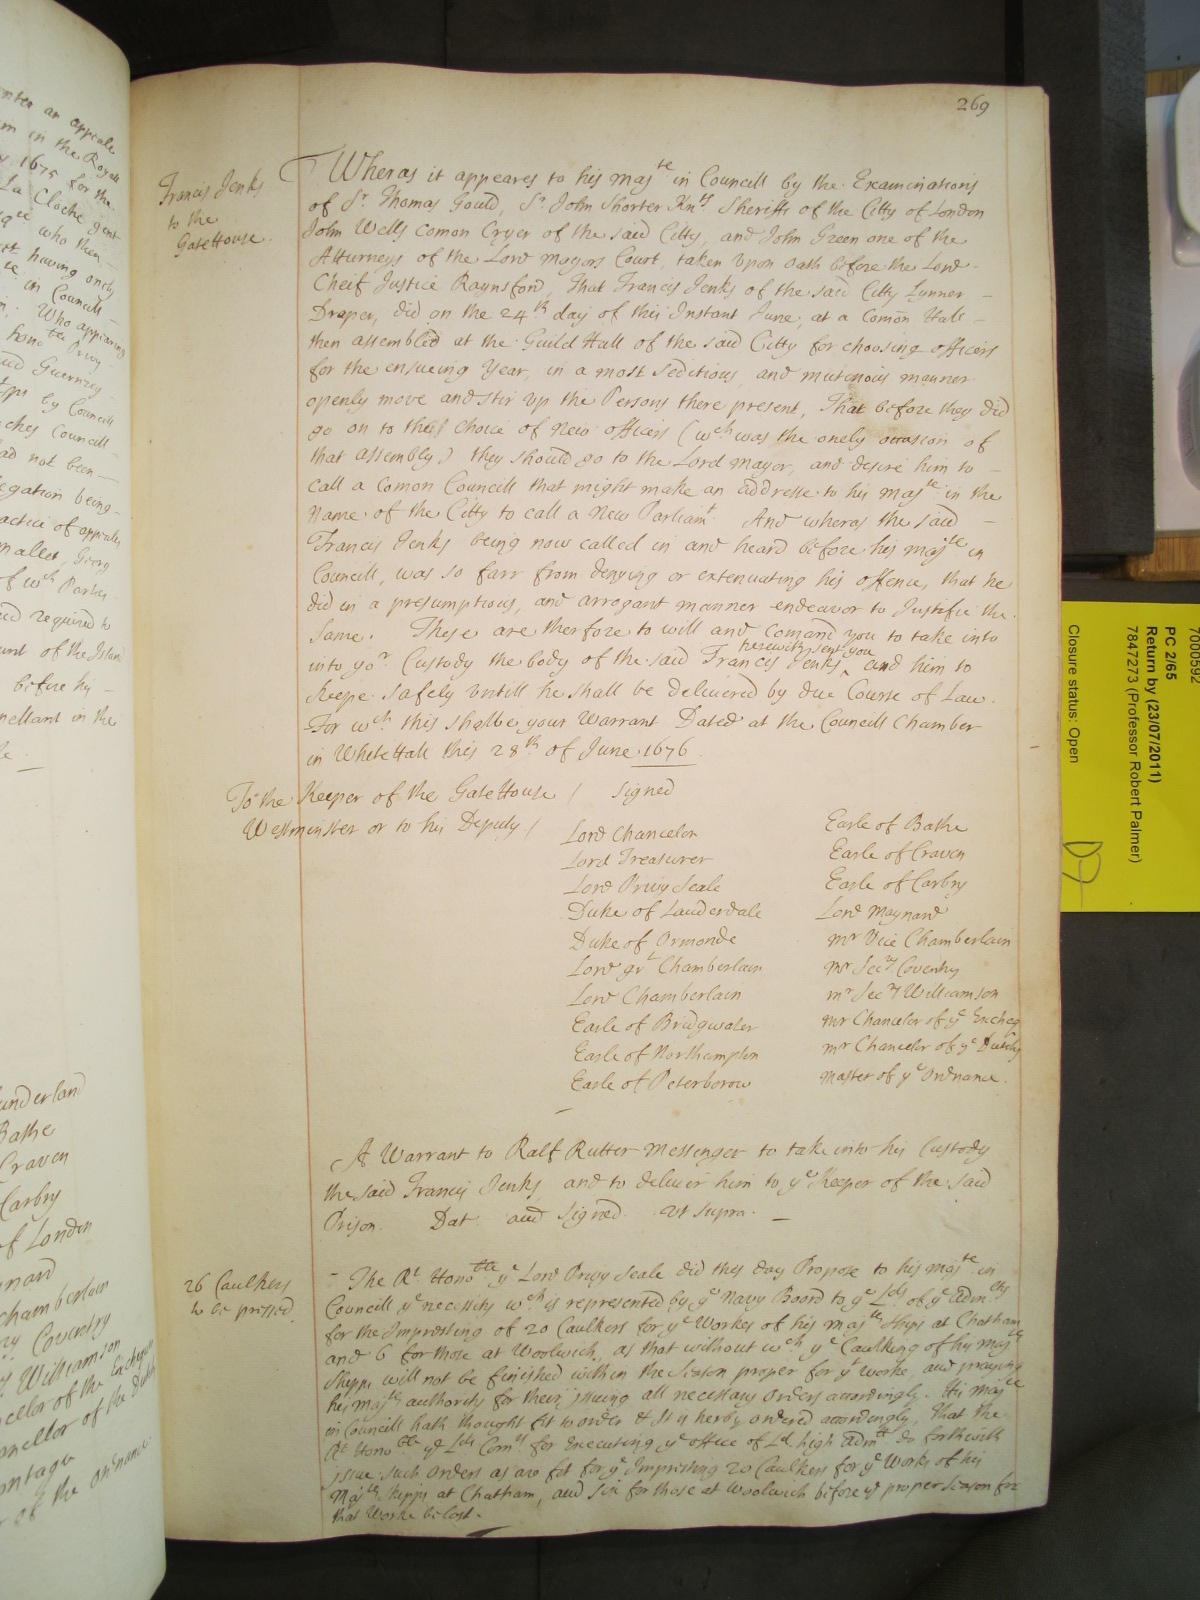 269
Francis Jenks
to the
GateHouse.
Wheras it appeares to his Majte in Councill by the Examinations
of Sr. Thomas Gould, Sr. John Shorter Knts Sheriffs of the Citty of London
John Wells Comon Cryer of the said Citty, and John Green one of the
Attorneys of the Lord Mayors Court, taken upon oath before the Lord
Cheif Justice Raynsford, That Francis Jenks of the said Citty Lynner
Draper, did on the 24th day of this Instant June, at a Comõn Hall
then assembled at the Guild Hall of the said Citty for choosing officers
for the ensueing Year, in a most seditious, and mutenous manner
openly move and stir up the Persons there present, That before they did
go on to the Choice of New officers (wch was the onely occasion of
that assembly) they should go to the Lord Mayor, and desire him to
call a Comon Councill that might make an Addresse to his Majte in the
Name of the Citty to call a New Parliamt. And wheras the said
Francis Jenks being now called in and heard before his Majte in
Councill, was so farr from denying or extenuating his offence, that he
did in a presumptious, and arrogant manner endeavor to Justifie the
same. These are therfore to will and Comand you to take into
into yor. Custody the body of the said Francis Jenks herewith sent you and him to
keepe safely untill he shall be delivered by due Course of Law.
For wch this shalbe your Warrant Dated at the Councill Chamber
in WhiteHall this 28th of June 1676
To the Keeper of the GateHouse / Signed
Westminster or to his Deputy /
Lord Chancelor
Lord Treasurer
Lord Privy Seale
Duke of Lauderdale
Duke of Ormonde
Lord grt Chamberlain
Lord Chamberlain
Earle of Bridgwater
Earle of Northampton
Earle of Peterborow
Earle of Bathe
Earle of Craven
Earle of Carbry
Lord Maynard
Mr Vice Chamberlain
Mr Secry Coventry
Mr Secry Williamson
Mr Chancelor of ye Excheq
Mr Chancelor of ye Dutchy
Master of ye Ordnance.
A Warrant to Ralf Rutter Messenger to take into his Custody
the said Francis Jenks, and to deliver him to ye Keeper of the said
Prison. Dat. and Signed ut supra.
26 Caulkers
to be pressed
The Rt Honoble ye Lord Privy Seale did this day Propose to his Majte in
Councill ye necessity wch is represented by ye Navy Board to ye Lds of ye Admlty
for the Impresting of 20 Caulkers for ye Workes of his Majtes Ships at Chatham
and 6 for those at Woolwich, as that without wch ye Caulking of his Majtes
Shipps will not be finished within the Season proper for ye worke, and praying
his Majtes authority for their issuing all necessary Orders accordingly. His Majte
in Councill hath thought fit to order & It is herby ordered accordingly, That the
Rt Honoble ye Lds Comrs for Executing ye office of Ld. high Admll do forthwith
issue such Orders as are fit for ye Impresting 20 Caulkers for ye Works of his
Majtes Shipps at Chatham, and six for those at Woolwich before ye proper season for
that Worke be lost.
7000592
PC 2/65
Return by (23/07/2011)
7847273 (Professor Robert Palmer)
Closure status: Open
nter an appeale
in the Royall
1675 for the
La Cloche gent
who then
having onely
in Councill
Who appearing
hono ble Privy
Guernzey
by Councill
Councill
ad not been
egation being
actice of appeales
of wch
required to
of the Island
before his
pellant in the
underland
Bathe
Craven
Carbry
of London
nard
Chamberlain
ry Coventry
ry Williamson
celor of the Excheqr
ncellor of the Dutchy
ontagu
r of the Ordnance